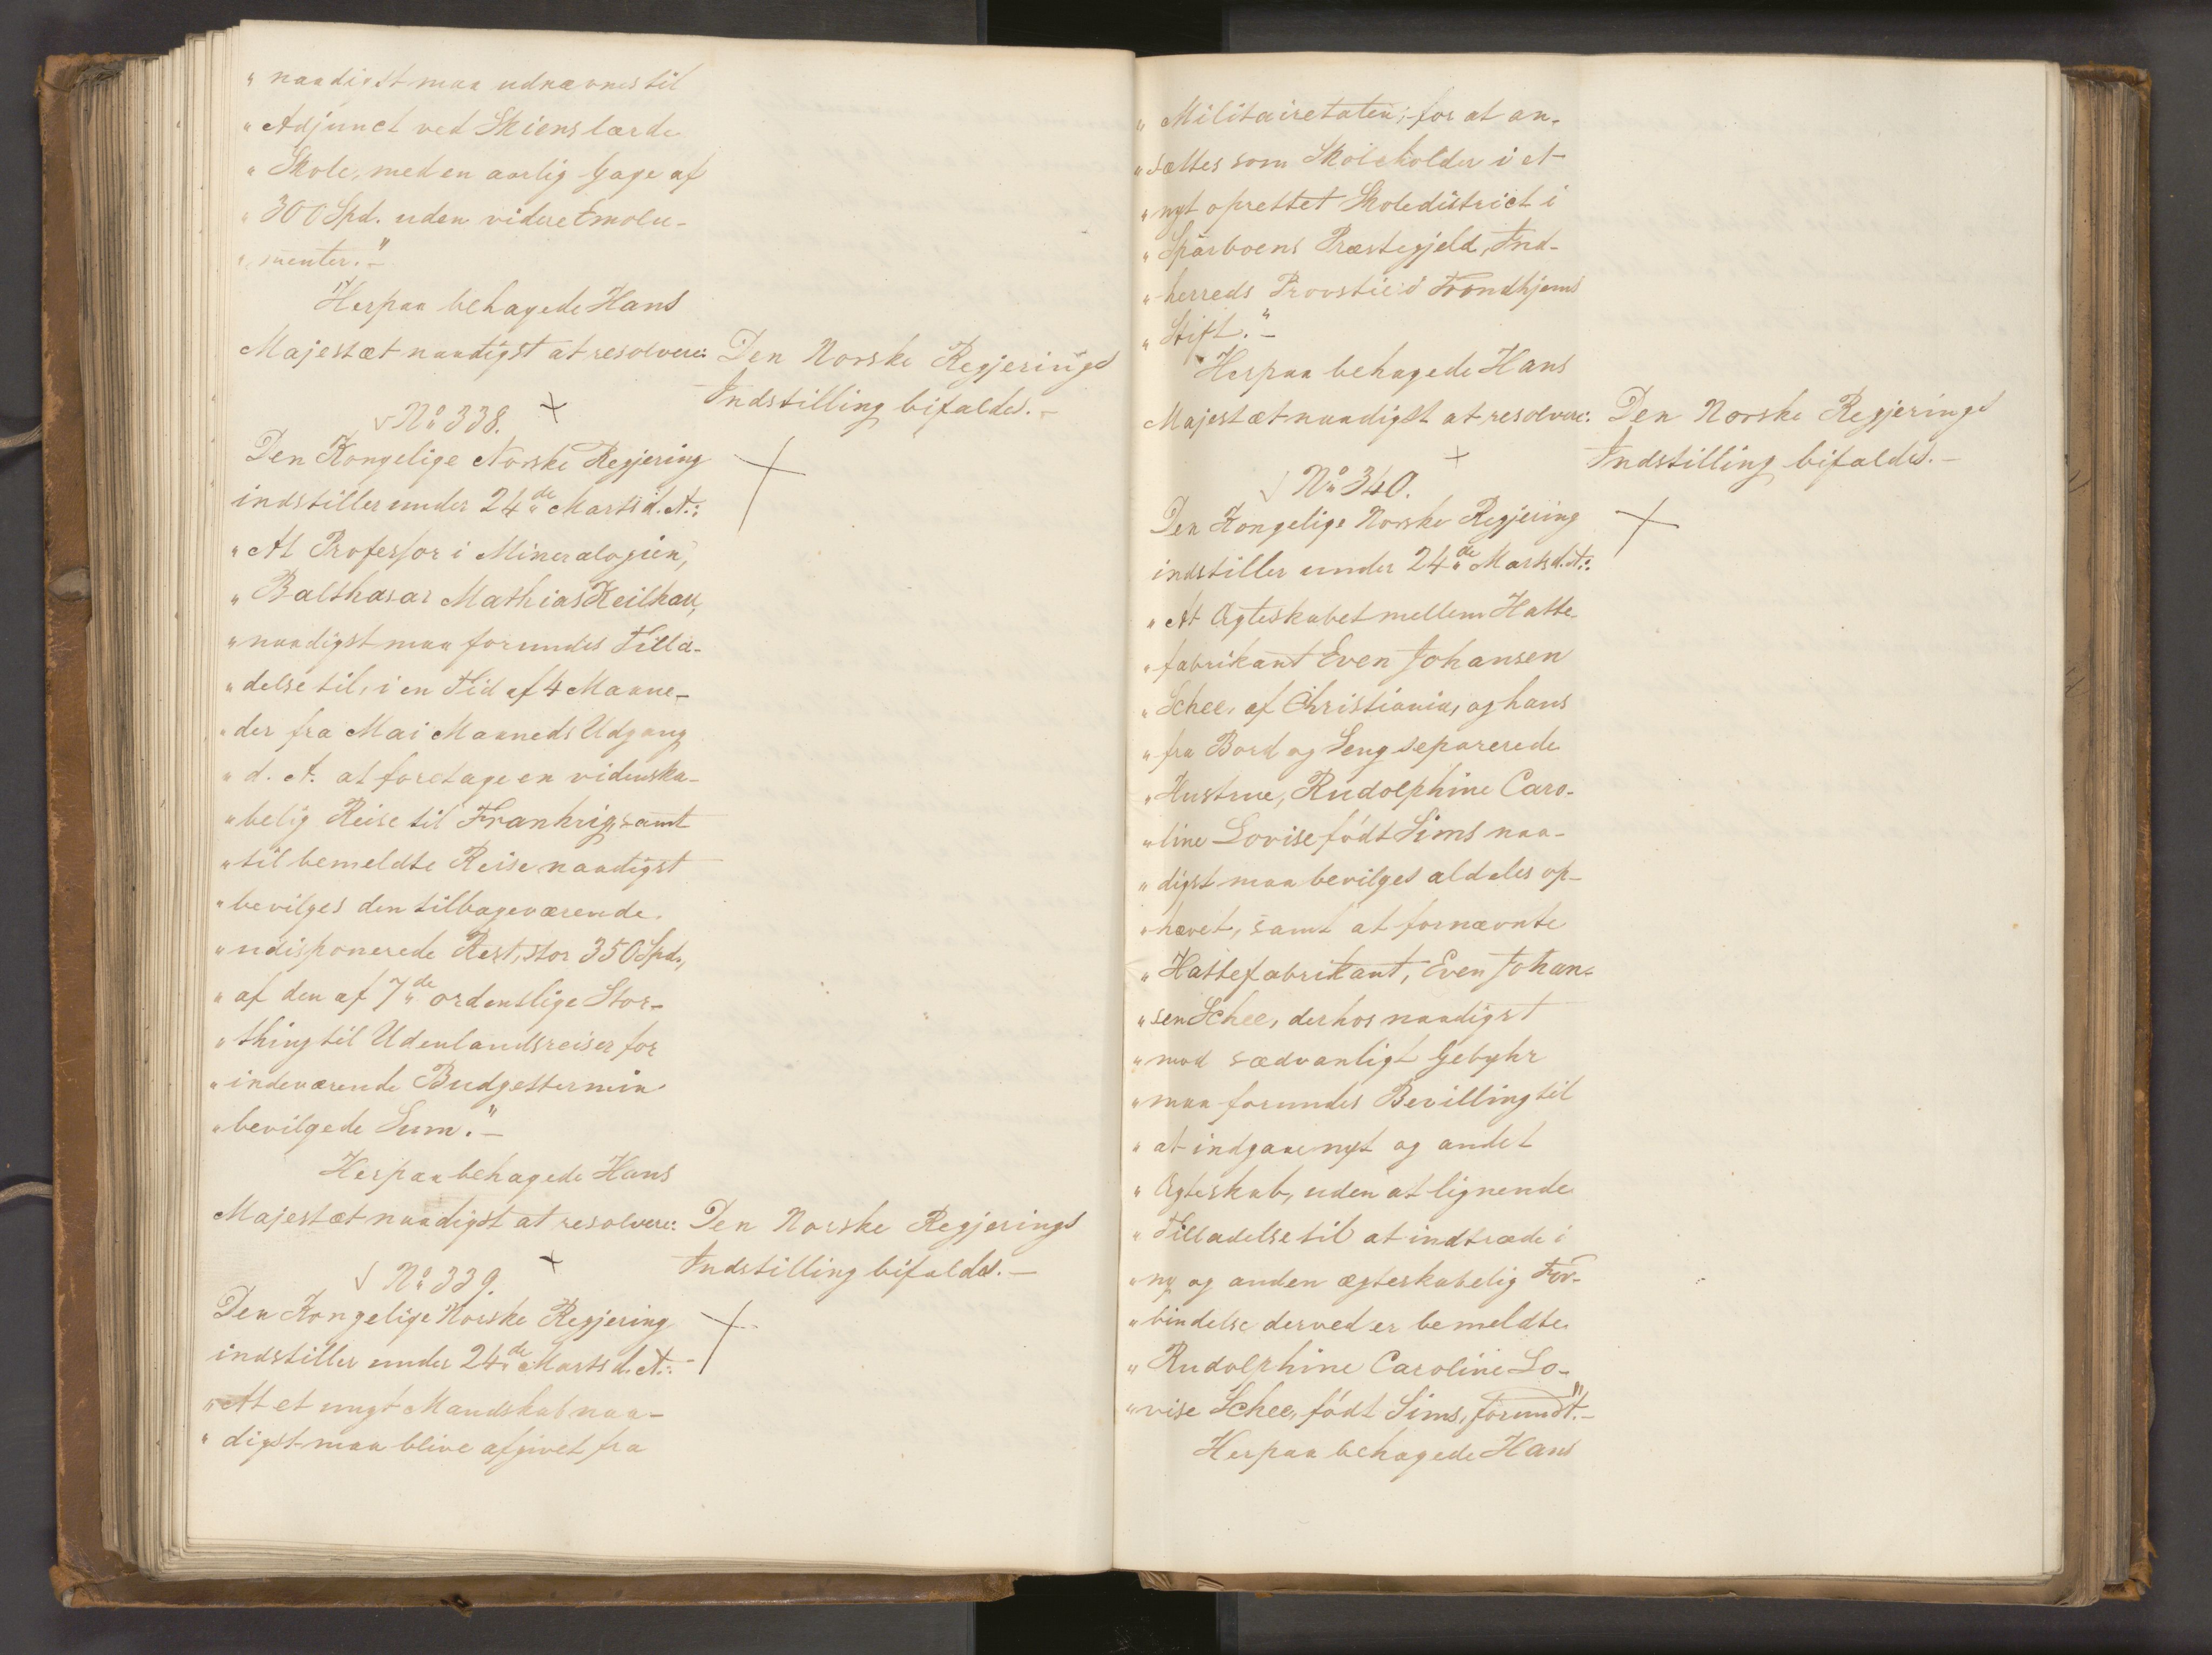 „naadigst maa udnævnes til
„Adjunct ved Skiens lærde
„Skole, med en aarlig Gage af
„300 Spd. uden videre Emolu-
„menter."-
Herpaa behagede Hans
Majestæt naadigst at resolvere: Den Norske Regjerings
Indstilling bifaldes.-
No 338.
Den Kongelige Norske Regjering
indstiller under 24de Marts d. A.:
„At Professor i Mineralogien,
„Balthasar Mathias Keilhau,
„naadigst maa forundes Tilla-
„delse til, i en Tid af 4 Maane-
„der fra Mai Maaneds Udgang
„d. A. at foretage en videnska-
„belig Reise til Frankrig, samt
„til bemeldte Reise naadigst
„bevilges den tilbageværende
„udisponerede Rest, stor 350 Spd.,
„af den af 7de ordentlige Stor-
„thing til Udenlandsreiser for
„indeværende Budgettermin
„bevilgede Sum."-
Herpaa behagede Hans
Majestæt naadigst at resolvere: Den Norske Regjerings
Indstilling bifaldes.-
No 339.
Den Kongelige Norske Regjering
indstiller under 24de Marts d. A.:
„At et ungt Mandskab naa-
„digst maa blive afgivet fra
„Militairetaten, for at an-
„sættes som Skoleholder i et
„nyt oprettet Skoledistrict i
„Sparboens Præstegjeld, Ind-
„herreds Provstie i Trondhjems
„Stift."-
Herpaa behagede Hans
Majestæt naadigst at resolvere: Den Norske Regjerings
Indstilling bifaldes.-
No 340.
Den Kongelige Norske Regjering
indstiller under 24de Marts d. A.:
„At Ægteskabet mellem Hatte-
„fabrikant Even Johansen
„Schee, af Christiania, og hans
„fra Bord og Seng separerede
„Hustrue, Rudolphine Caro-
„line Lovise født Sims naa-
„digst maa bevilges aldeles op-
„hævet, samt at fornævnte
„Hattefabrikant, Even Johan-
„sen Schee, derhos naadigst
„mod sædvanligt Gebyhr
„maa forundes Bevilling til
„at indgaae nyt og andet
„Ægteskab, uden at lignende
„Tilladelse til at indtræde i
„ny og anden ægteskabelig For-
„bindelse derved er bemeldte
„Rudolphine Caroline Lo-
„vise Schee, født Sims, forundt."-
Herpaa behagede Hans